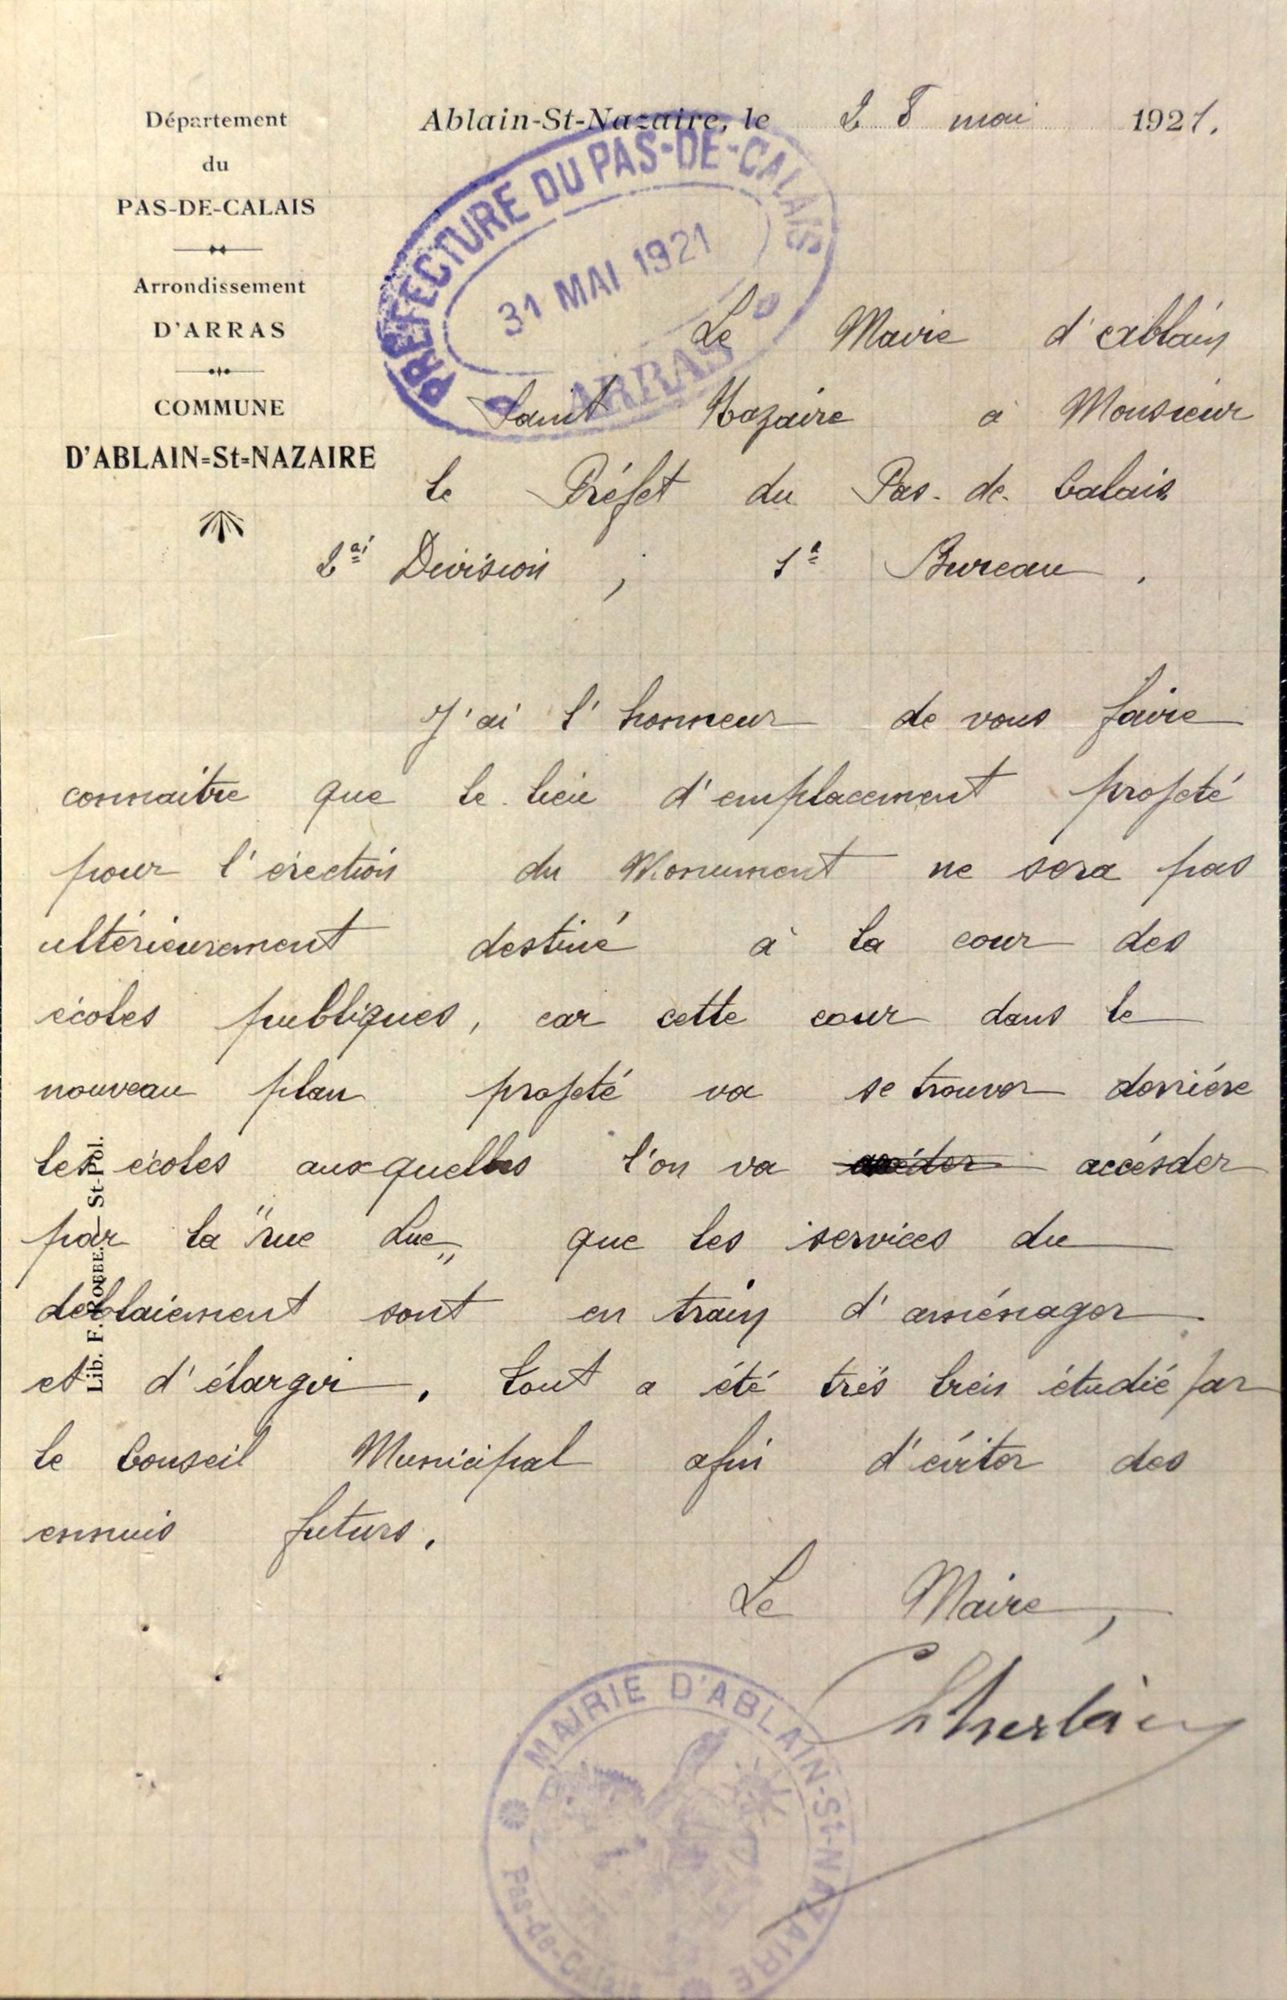 Département
du
PAS-DE-CALAIS
Arrondissement
D'ARRAS
COMMUNE
D'ABLAIN=St=NAZAIRE
Ablain-St-Nazaire, le 28 mai 1921.
PRÉFECTURE DU PAS-DE-CALAIS
31 MAI 1921
ARRAS
Le Maire d'Ablain
Saint Nazaire à Monsieur
le Préfet du Pas-de-Calais
2ai Division, 1e Bureau.
J'ai l'honneur de vous faire
connaitre que le lieu d'emplacement projeté
pour l'érection du Monument ne sera pas
ultérieurement destiné à la cour des
écoles publiques, car cette cour dans le
nouveau plan projeté va se trouver derriére
les écoles auxquelles l'on va accésder
par la "rue Lue" que les services du
deblaiement sont en train d'aménager
et d'élargir. Tout a été trés bien étudié par
le Conseil Municipal afin d'éviter des
ennuis futurs.
Le Maire,
MAIRIE D'ABLAIN-St-NAZAIRE
Pas-de-Calais
Lib. F. ROBBE. — St-Pol.